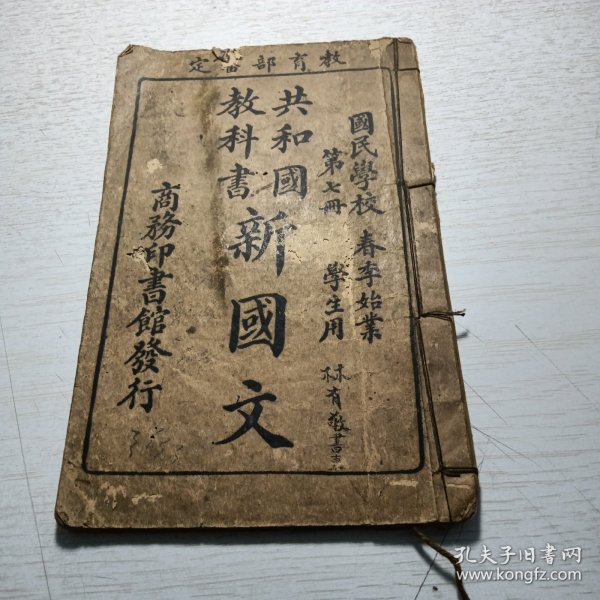 教育部審定
國民學校 春季始業
第七冊 學生用
共和國
教科書
新國文
商務印書館發行
林有
孔夫子旧书网
www.kongfz.com